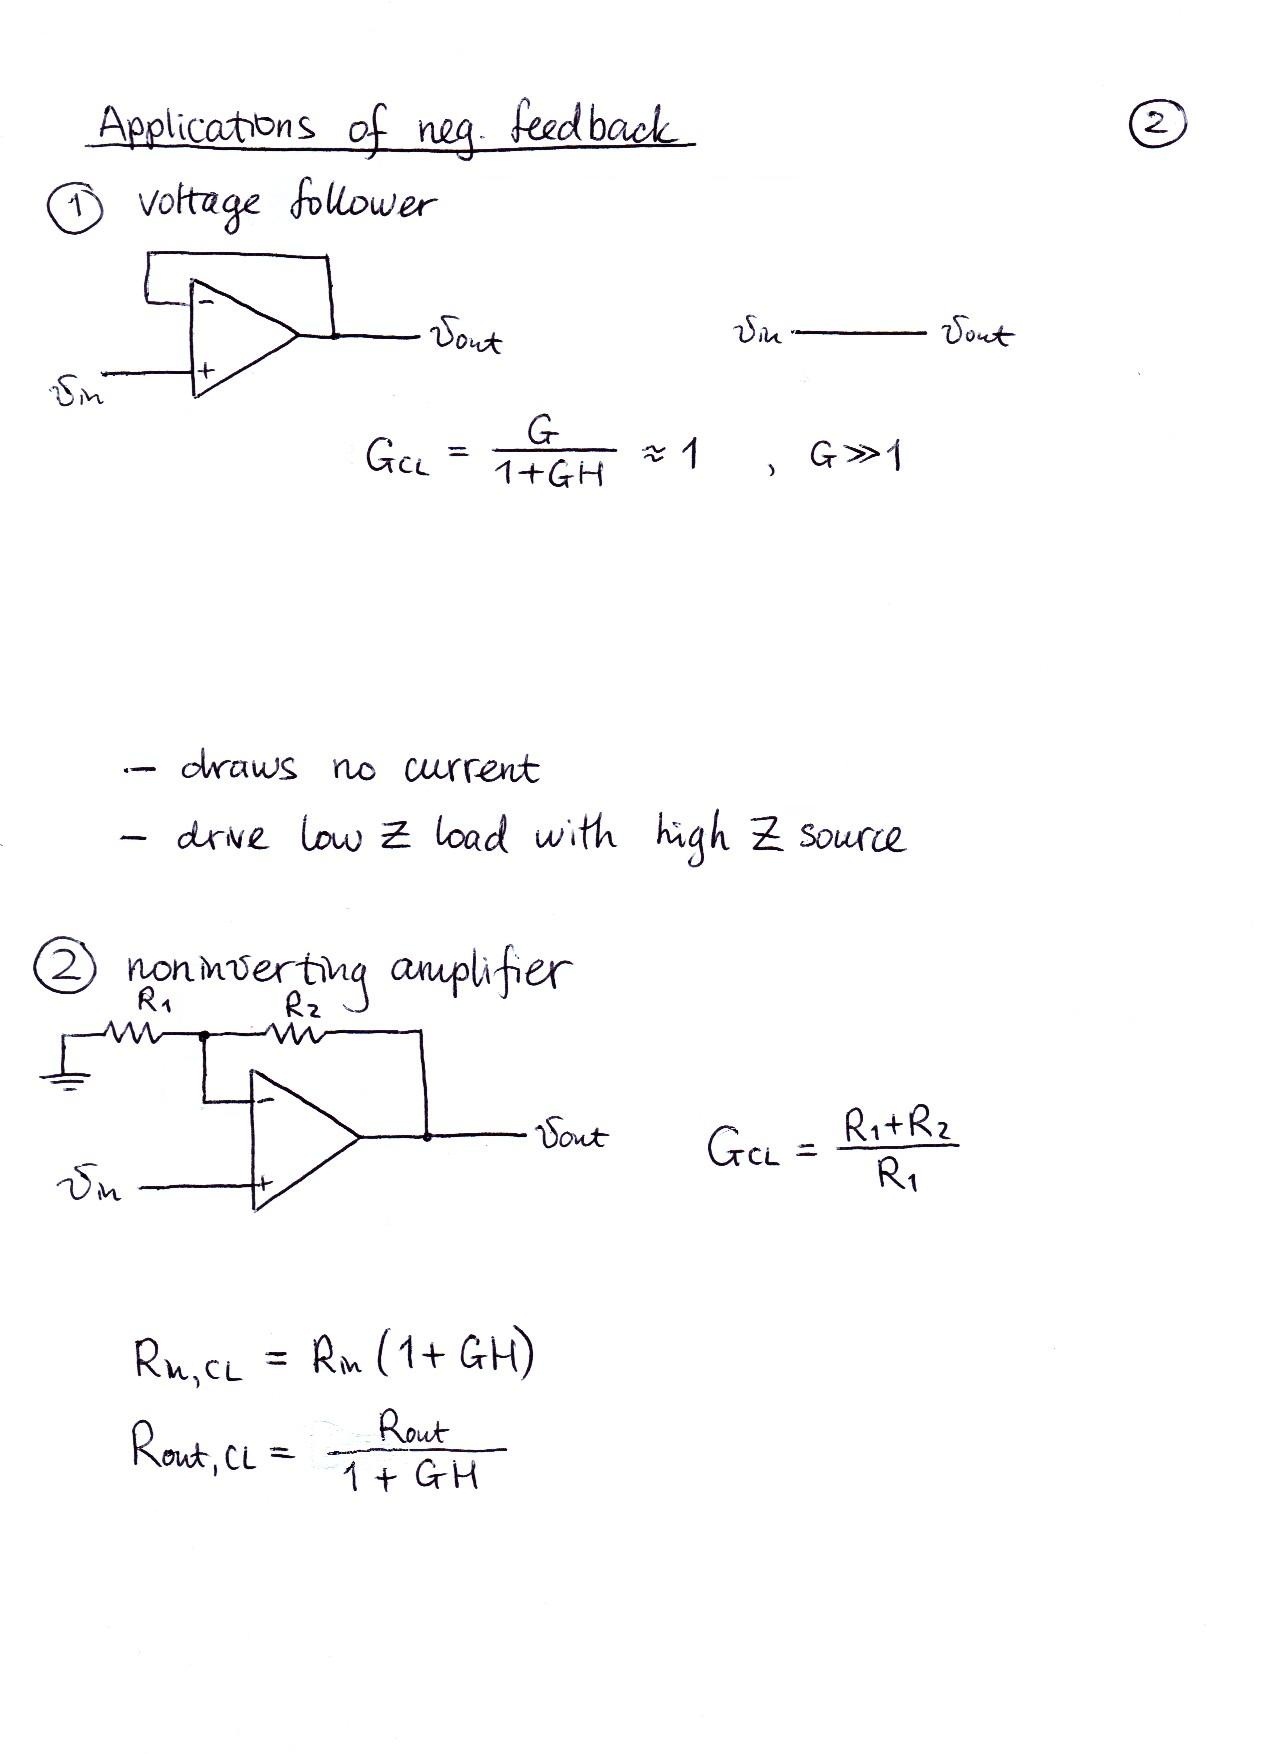 Applications of neg. feedback
②
① voltage follower
-
+
vout
vin
vin
vout
GCL = G / 1+GH ≈ 1 , G≫1
- draws no current
- drive low Z load with high Z source
② noninverting amplifier
R1
R2
-
+
vout
vin
GCL = R1+R2 / R1
Rin,CL = Rin (1+ GH)
Rout,CL = Rout / 1 + GH